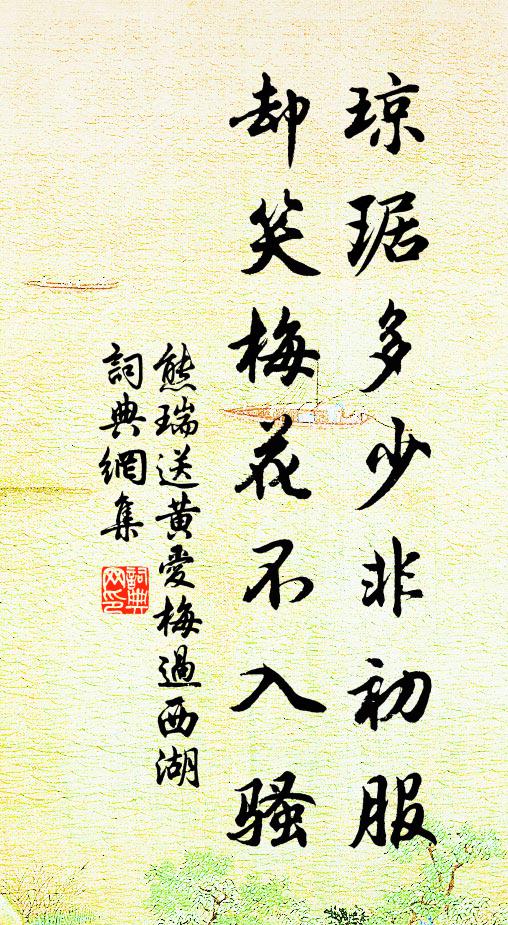 琼琚多少非初服
却笑梅花不入骚
熊瑞送黄愛梅過西湖
詞典網集
詞典网印